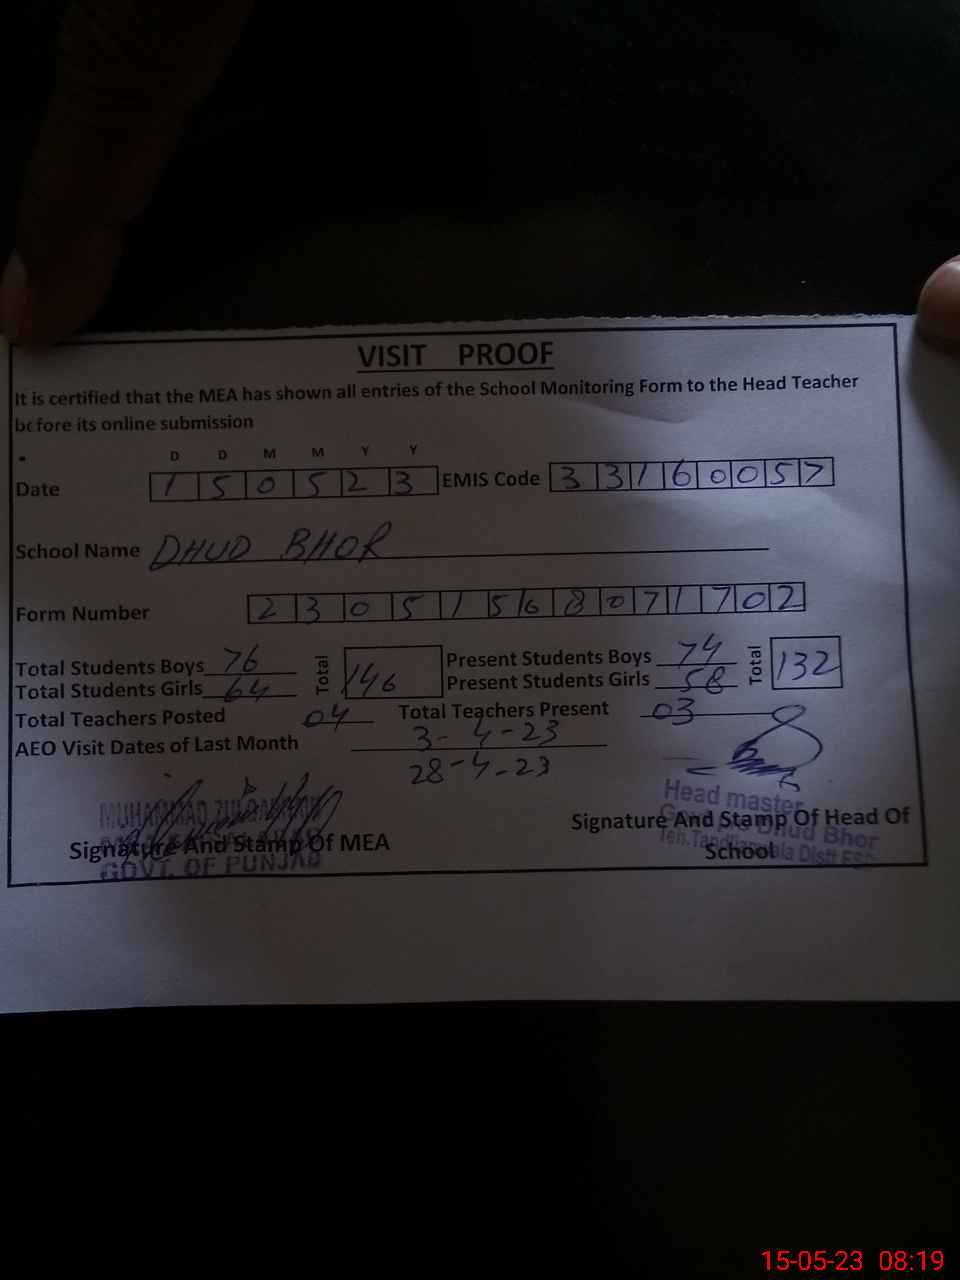 VISIT PROOF
It is certified that the MEA has shown all entries of the School Monitoring Form to the Head Teacher
before its online submission
D D M M Y Y
Date 1 5 0 5 2 3 EMIS Code 3 3 1 6 0 0 5 7
School Name DHUD BHOR
Form Number 2 3 0 5 1 5 6 8 0 7 1 7 0 2
Total Students Boys 76 Total 146 Present Students Boys 74 Total 132
Total Students Girls 64 Present Students Girls 58
Total Teachers Posted 04 Total Teachers Present 03
AEO Visit Dates of Last Month 3-4-23
28-4-23
MUHAMMAD
Signature And Stamp Of MEA
GOVT. OF PUNJAB
Head master
Signature And Stamp Of Head Of
Dhud Bhor
School
Teh. Distt
15-05-23 08:19